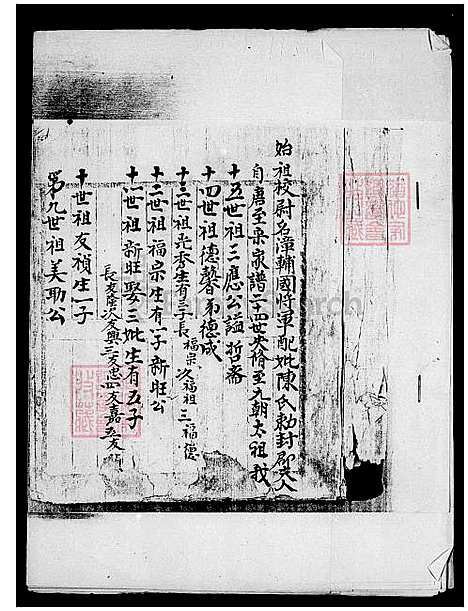 始祖校尉名漳輔國將軍配妣陳氏勅封郡夫人
自唐至宋家譜二十四世失脩至九朝太祖我
十五世祖三應公諡哲斋
十四世祖德馨弟德成
十三世祖光泰生有三子長福宗次福祖三福德
十二世祖福宗生有一子新旺公
十一世祖新旺娶三妣生有五子
長友隆次友興三友忠四友嘉五友
十世祖友禎生一子
第九世祖美助公